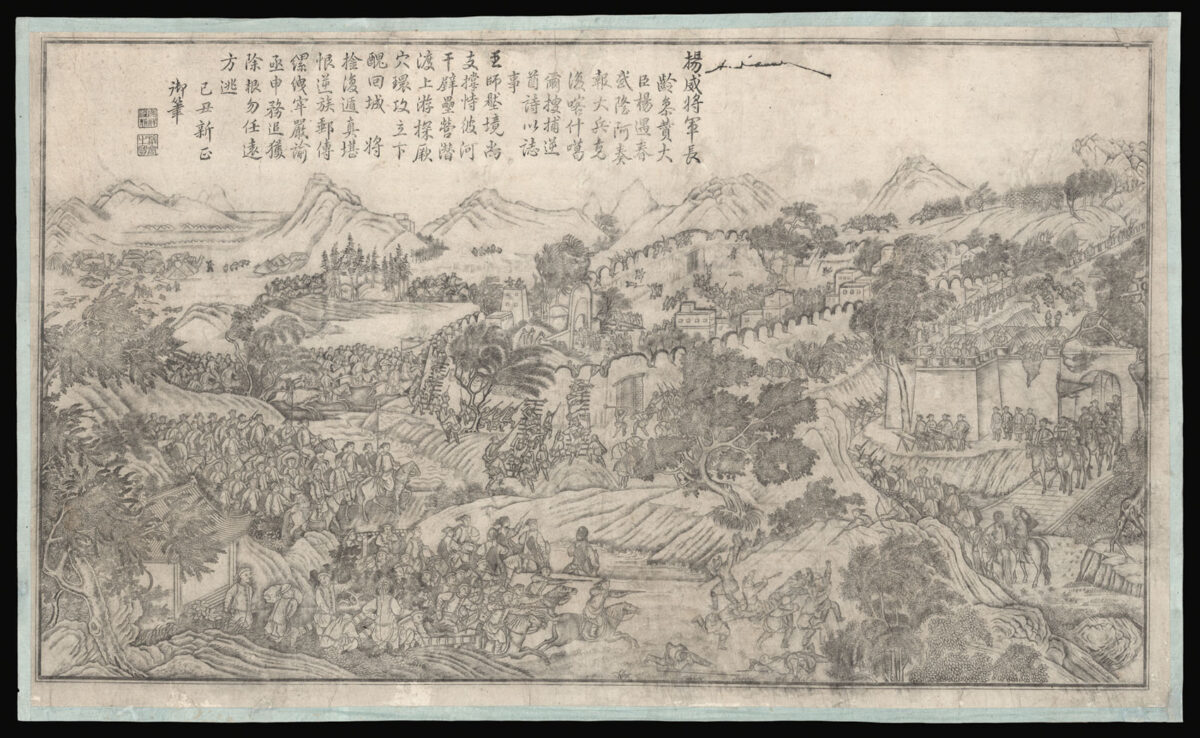 楊威將軍長
齡叅贊大
臣楊遇春
武隆阿奏
報大兵克
復喀什噶
爾搜捕逆
酋詩以誌
事
王師壓境尚
支撐恃彼河
干壁壘營潛
渡上游探厥
穴環攻立下
醜回城 將
擒復遁真堪
恨逆族郵傳
縲絏牢嚴諭
亟申務追獲
除根勿任遠
方逃
己丑新正
御筆